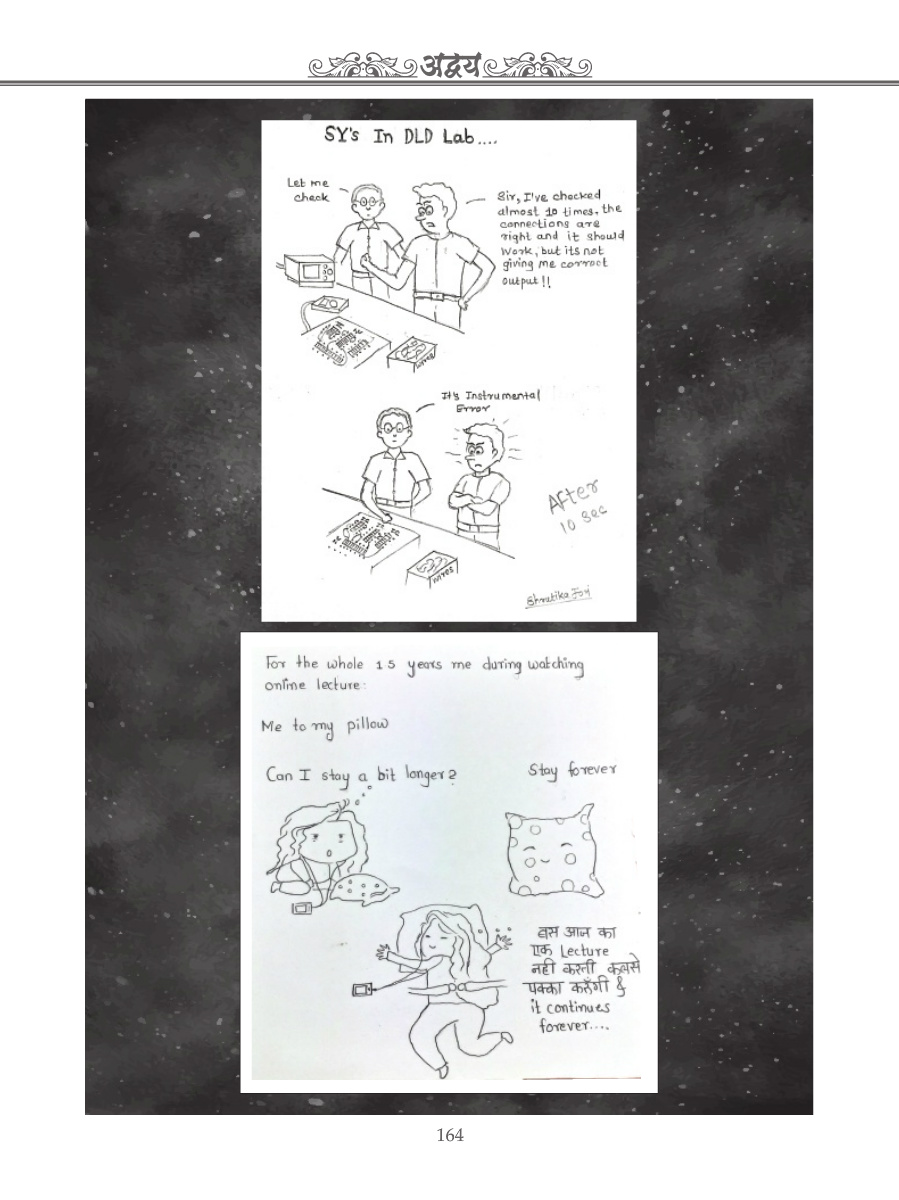 अद्वय
SY's In DLD Lab....
Let me
check
Sir, I've checked
almost 10 times, the
connections are
right and it should
work, but its not
giving me correct
output!!
wires
It's Instrumental
Error
After
10 sec
wires
For the whole 15 years me during watching
online lecture:
Me to my pillow
Can I stay a bit longer?
Stay forever
बस आज का
एक Lecture
नही करती कलसे
पक्का करुँगी &
it continues
forever....
164